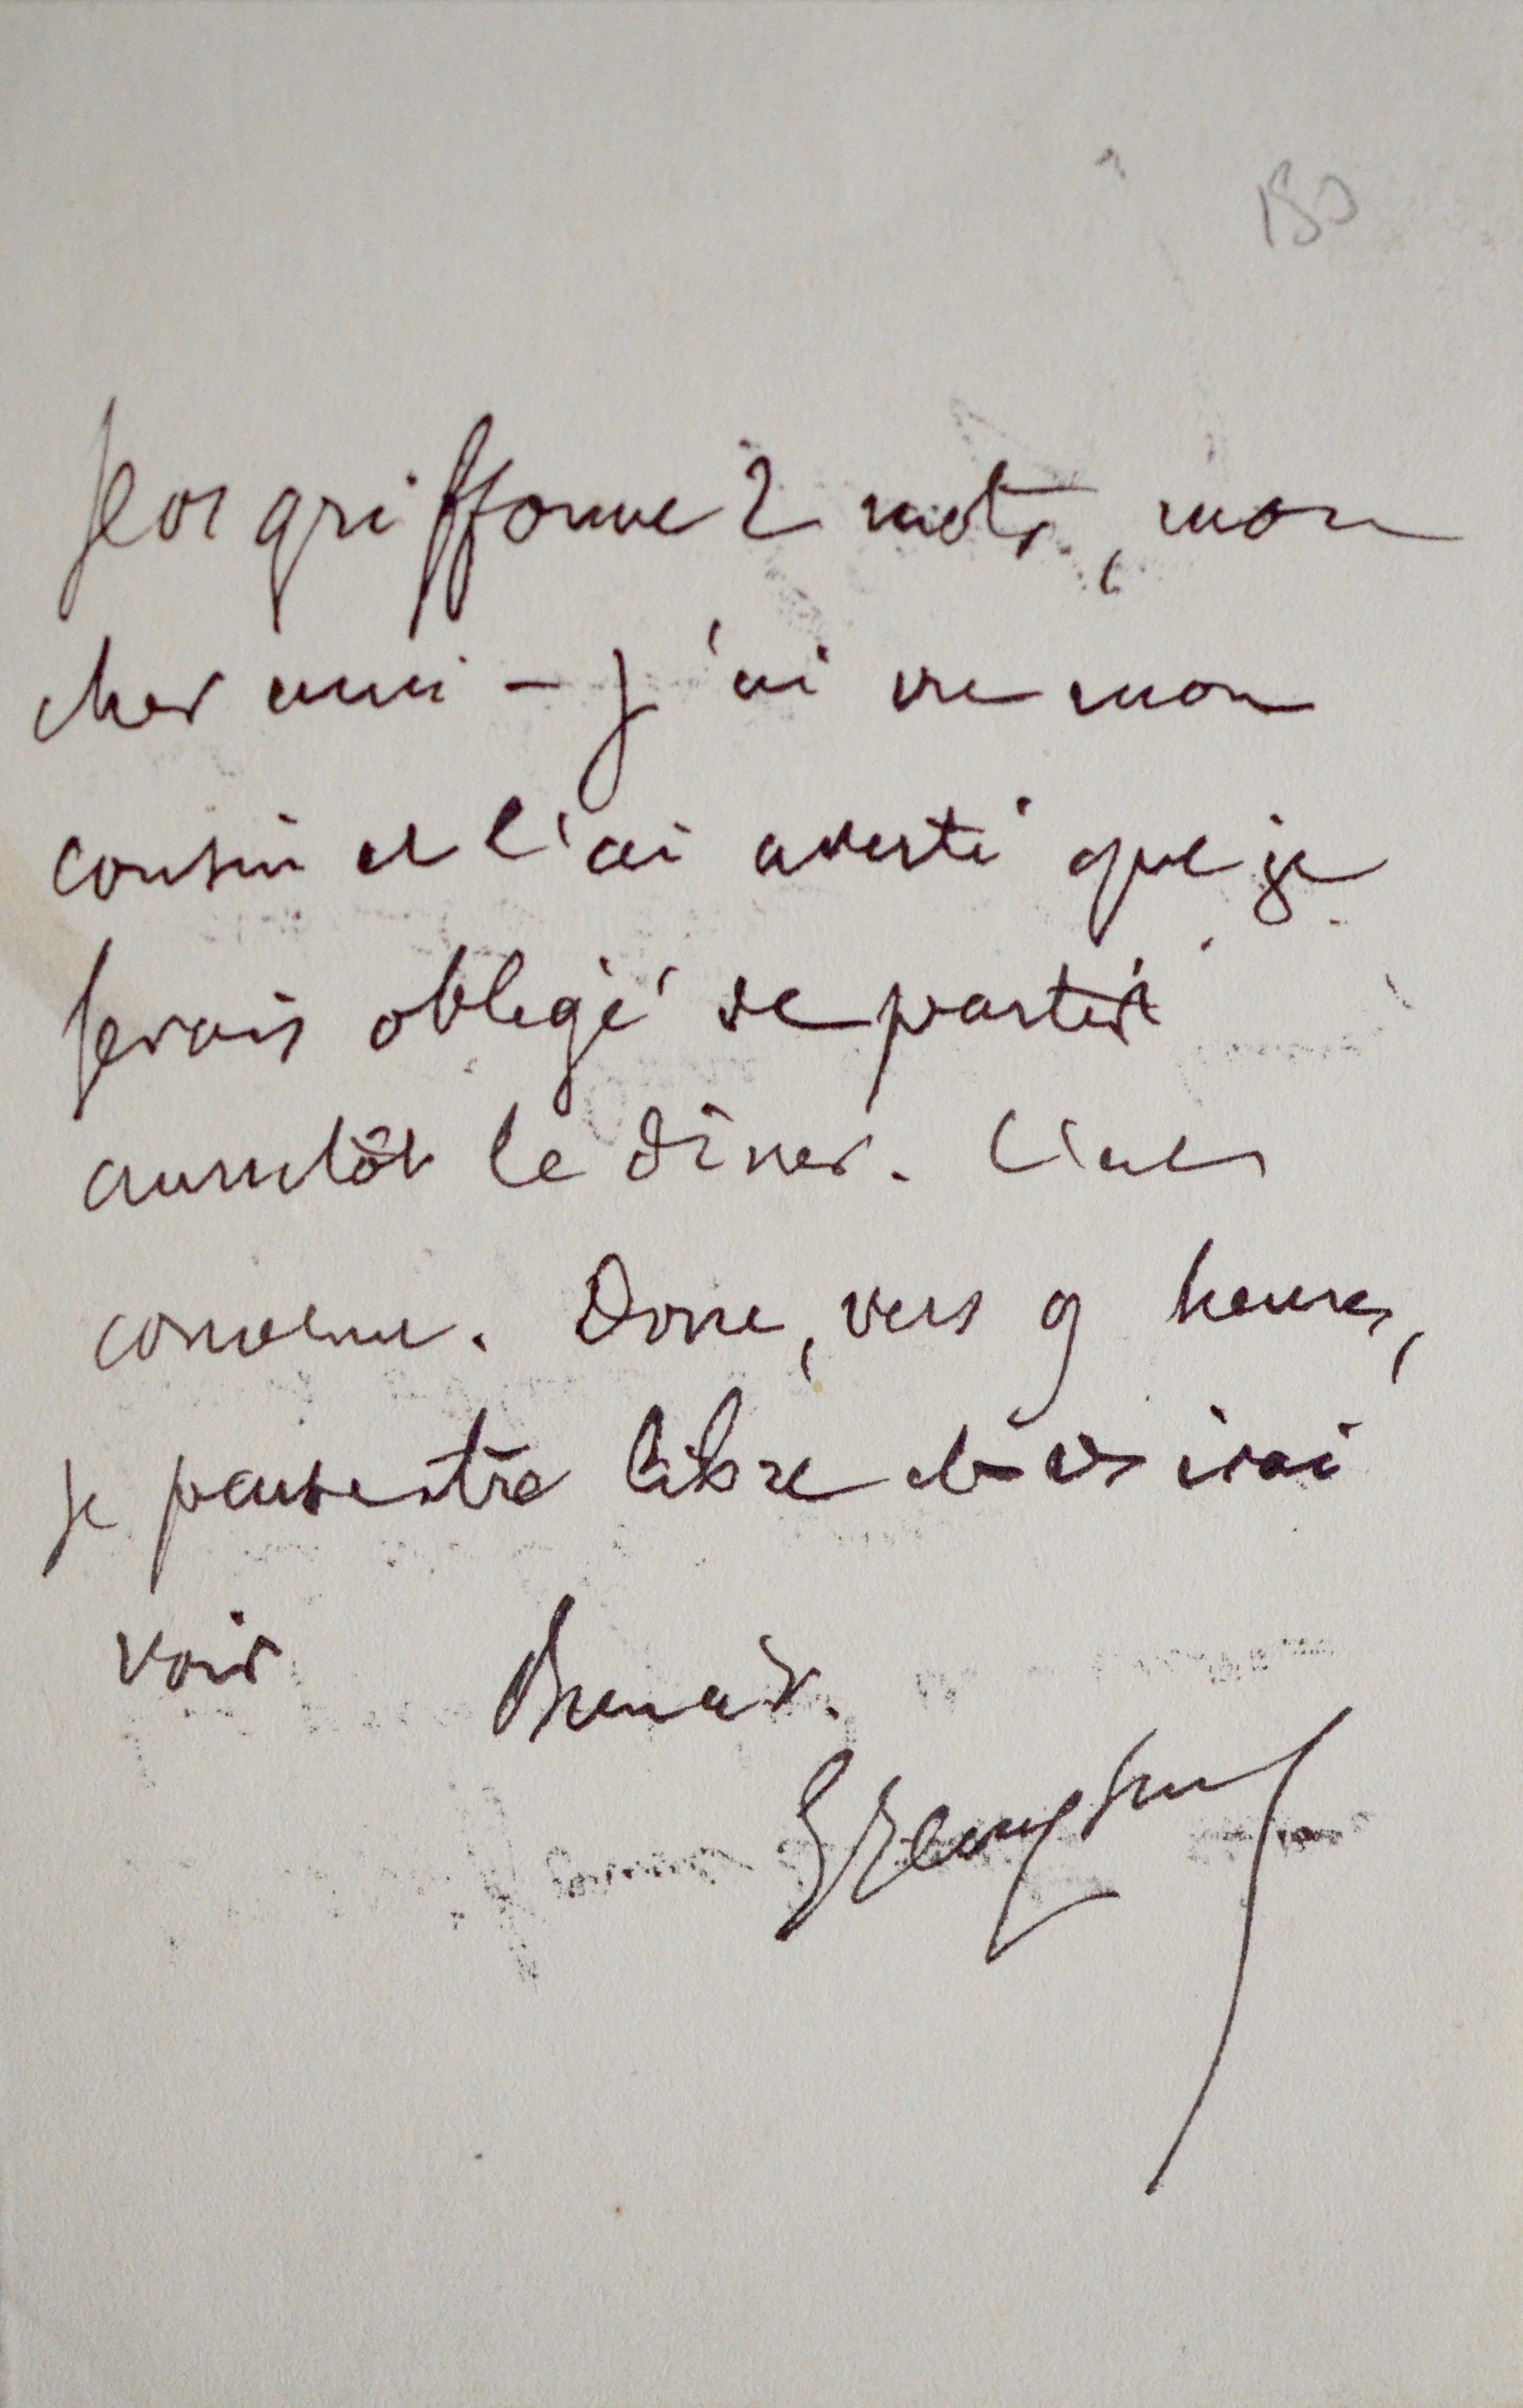 150
Je vs griffonne 2 mots, mon
cher ami – J'ai vu mon
cousin et l'ai averti que je
serais obligé de partir
aussitôt le dîner. C'est
convenu. Donc, vers 9 heures,
je pense être libre et vs irai
voir